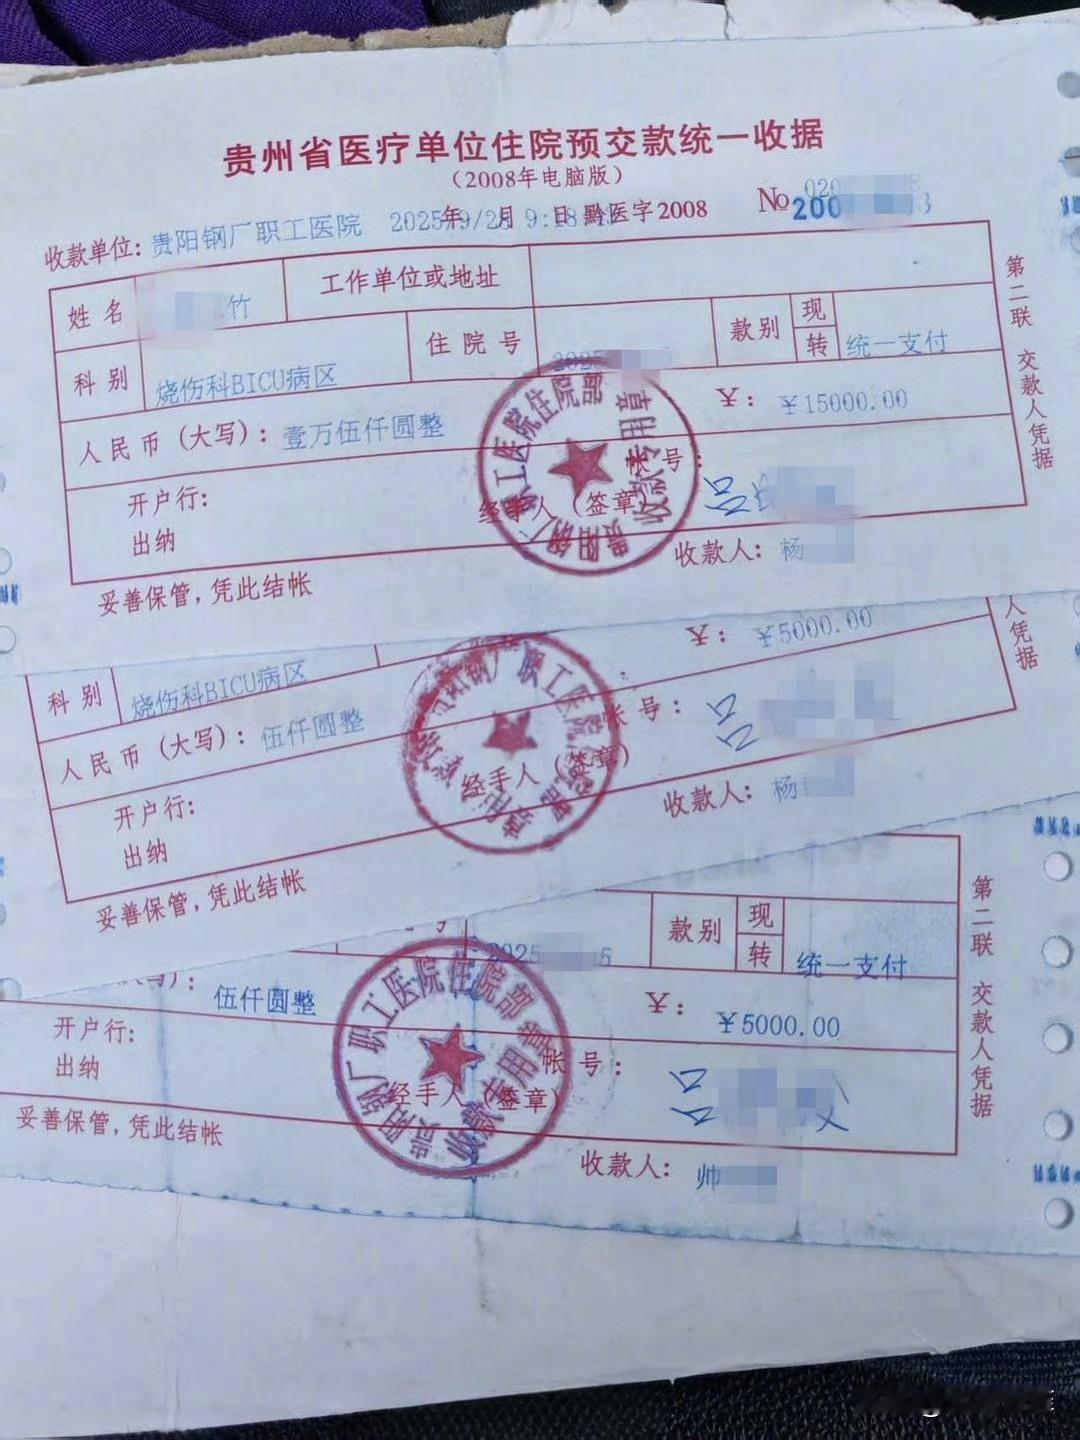 贵州省医疗单位住院预交款统一收据
(2008年电脑版)
收款单位: 贵阳钢厂职工医院 2025年9/28 月 9:18 日 黔医字2008 №
第二联 交款人凭据
姓名 竹 工作单位或地址
科别 烧伤科BICU病区 住院号 2025 5 款别 现 转 统一支付
人民币(大写): 壹万伍仟圆整 ¥: ¥15000.00
开户行: 帐号:
出纳 经手人(签章)
贵阳钢厂职工医院住院部 收款专用章
收款人: 杨
妥善保管,凭此结帐
人凭据
科别 烧伤科BICU病区 ¥: ¥5000.00
人民币(大写): 伍仟圆整
开户行: 帐号:
出纳 经手人(签章)
收款人: 杨
妥善保管,凭此结帐
第二联 交款人凭据
号 2025 5 款别 现 转 统一支付
大写): 伍仟圆整 ¥: ¥5000.00
开户行: 帐号:
出纳 经手人(签章)
贵阳钢厂职工医院住院部
收款人: 帅
妥善保管,凭此结帐